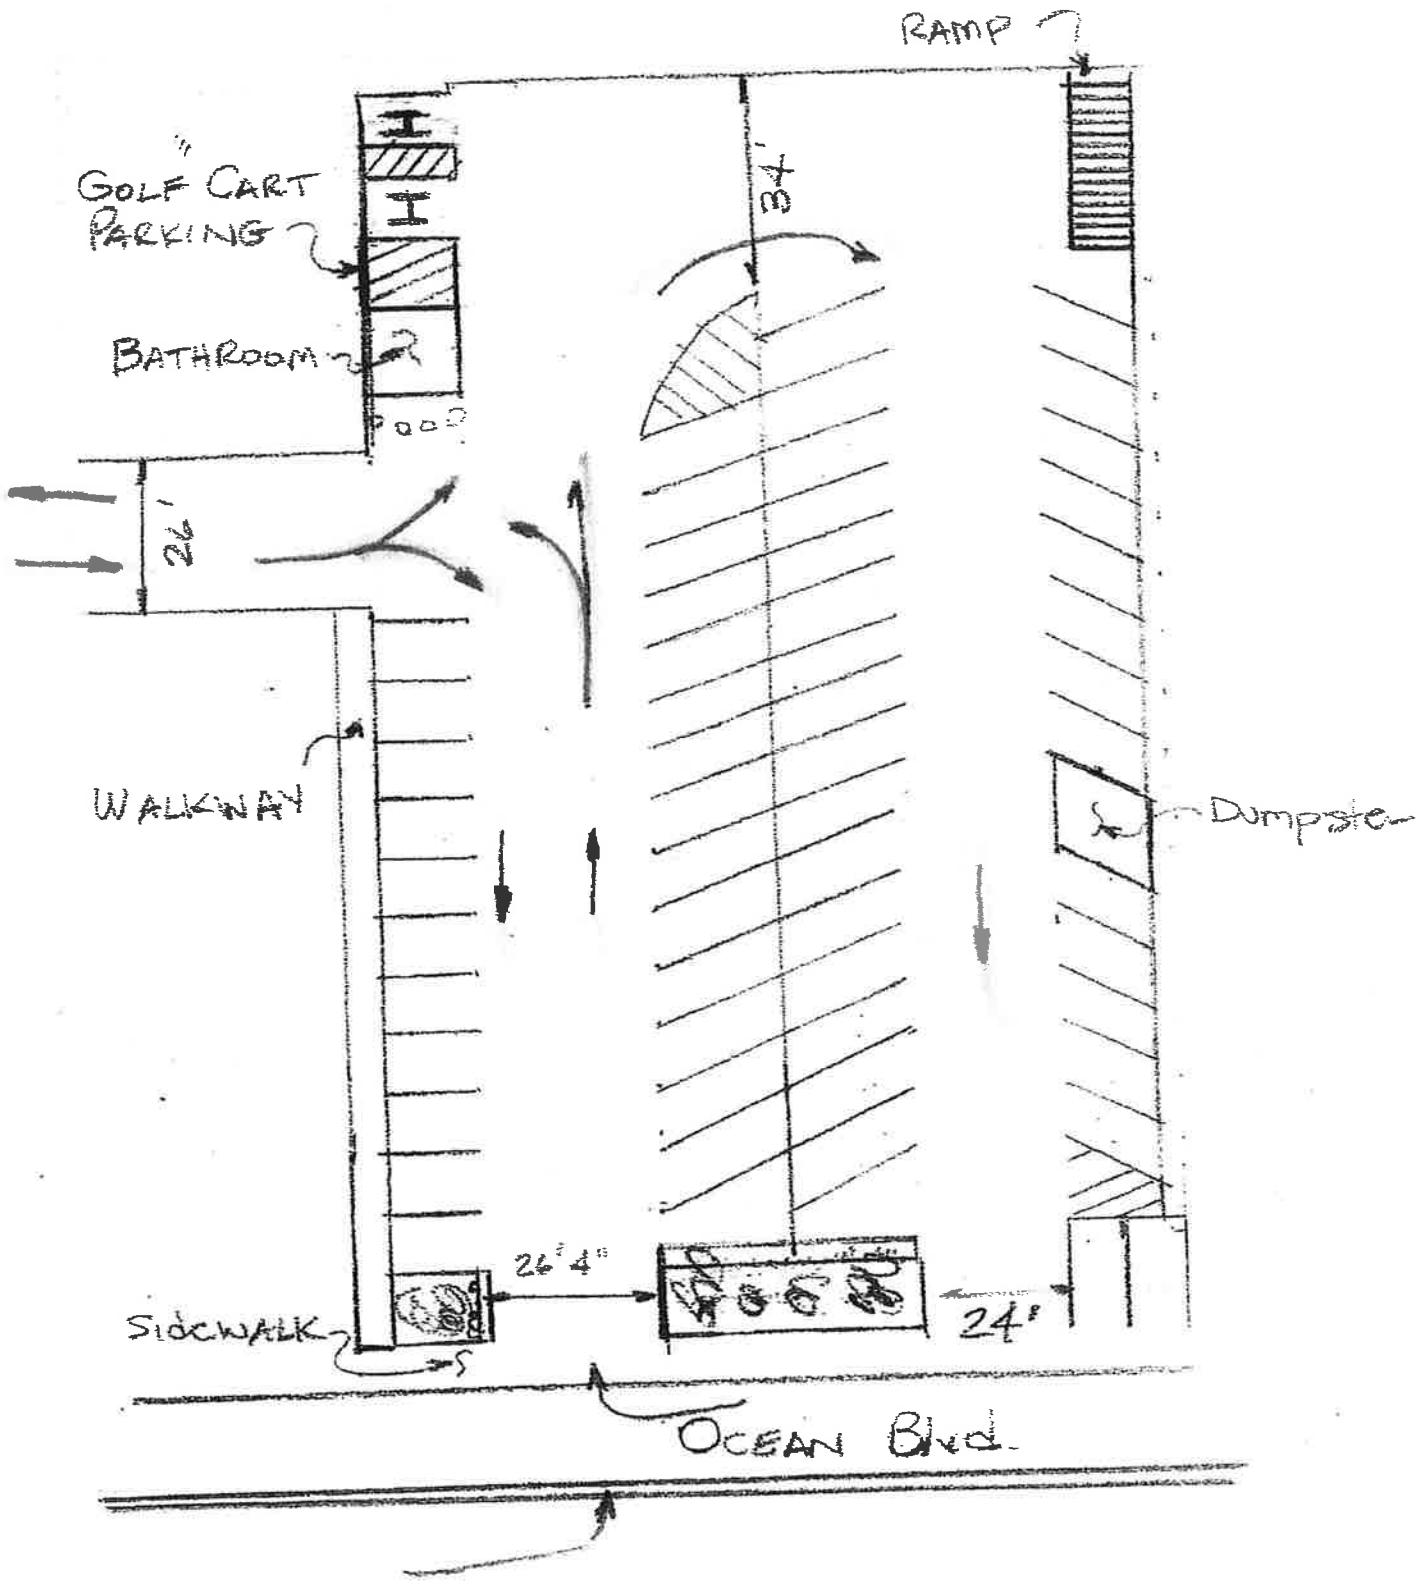 RAMP
H
34'
"
GOLF CART
PARKING
H
BATHROOM
26'
WALKWAY
Dumpster
26'4"
24'
SIDEWALK
OCEAN Blvd.